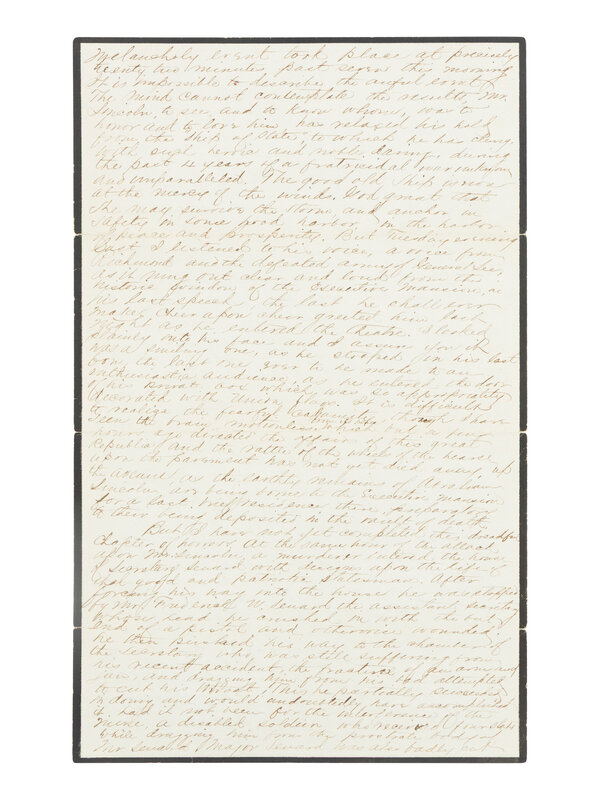 Melancholy event took place at precisely
twenty two minutes past seven this morning
It is impossible to describe the awful event
The mind cannot contemplate the results. Mr.
Lincoln, to see, and to know whom, was to
honor and to love him has relaxd his hold
from the "Ship of State" to which he has clung
with such heroic and noble daring, during
the past 4 years of a fratricidal war
unparalleled. The good old Ship is now
at the mercy of the wind. God grant that
She may survive the storm and anchor in
safety in some good harbor, in the harbor
of peace and prosperity. But Tuesday evening
last I listened to his voice, a voice from
Richmond and the defeated army of General Lee,
as it rung out clear and loud from the
historic window of the Executive Mansion, in
his last speech, the last he shall ever
make. Cheer upon cheer greeted him last
night as he entered the theatre. I looked
plainly into his face and I assure you it
was a smiling one, as he stooped in his last
bow, the last he ever to be made to an
enthusiastic audience, as he entered the door
of his private box which was so appropriately
decorated with Union flags. It is difficult
to realize the fearful calamity, though I have
seen the brain, motionless, which but a few
hours ago directed the affairs of this great
Republic and the rattle of the wheels of the hearse
upon the pavement has not yet died away, up
the avenue, as the earthly remains of Abraham
Lincoln are being borne to the Executive Mansion
for a last impress there, preparatory
to their being deposited in the vault of death.
But I have not yet completed this dreadful
chapter of horrors. At the same hour of the attack
upon Mr. Lincoln, a murderer entered the house
of Secretary Seward with designs upon the life of
that good and patriotic statesman. After
forcing his way into the house he was
by Mr. Frederick W. Seward the assistant secretary
whose head he crushed in with the butt
end of a pistol and otherwise wounded,
he then pushed his way to the chamber of
the Secretary who was still suffering from
his recent accident, the fracture of an arm and
jaw, and dragging him from his bed attempted
to cut his throat. This he partially succeeded
in doing and would undoubtedly have accomplished
it had it not been for the interference of the
nurse, a disabled soldier who received
while dragging him from the prostrate body of
Mr Seward. Major Seward was also badly cut